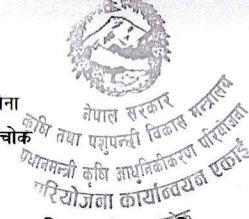 नेपाल सरकार
कृषि तथा पशुपन्छी विकास मन्त्रालय
प्रधानमन्त्री कृषि आधुनिकीकरण परियोजना
परियोजना कार्यान्वयन एकाई
चोक